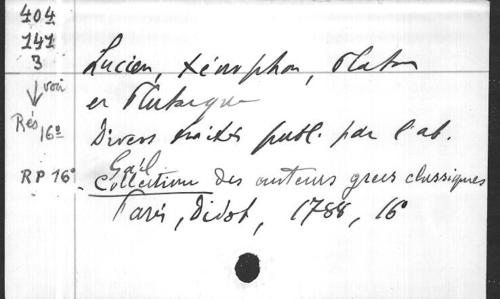 404
141
3
voir
Rés 16°
RP 16°
Lucien, Xénophon, Platon
et Plutarque
Divers traités publ. par l'ab.
Gail
Collection des auteurs grecs classiques
Paris, Didot, 1788, 16°